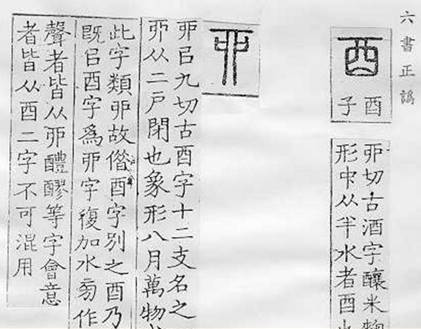 六書正譌
酉
酉
子
丣切古酒字釀米麴
形中从半水者酉
丣
丣㠯九切古酉字十二支名之
丣从二戶閉也象形八月萬物
此字類丣故偺酉字別之酉乃
既㠯酉字爲丣字復加水旁作
聲者皆从丣醴醪等字會意
者皆从酉二字不可混用